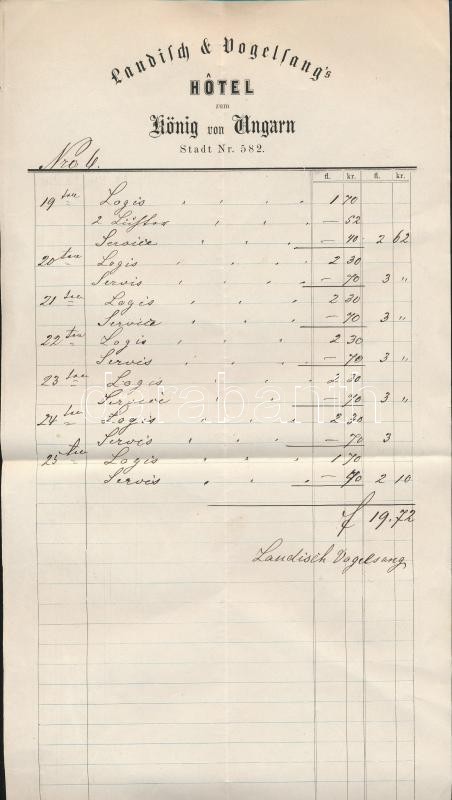 Landisch & Vogelsang's
HÔTEL
zum
König von Ungarn
Stadt Nr. 582.
Nro 6.
fl. kr. fl. kr.
19 ten Logis " " " 1 70
2 Lichter " " " — 52
Service " " " — 40 2 62
20 ten Logis " " " 2 30
Servis " " " — 70 3 "
21 ten Logis " " " 2 30
Service " " " — 70 3 "
22 ten Logis " " " 2 30
Servis " " " — 70 3 "
23 ten Logis " " " 2 30
Service " " " — 70 3 "
24 ten Logis " " " 2 30
Servis " " " — 70 3
25 ten Logis " " " 1 70
Servis " " " — 40 2 10
f 19.72
Landisch Vogelsang
darabanth